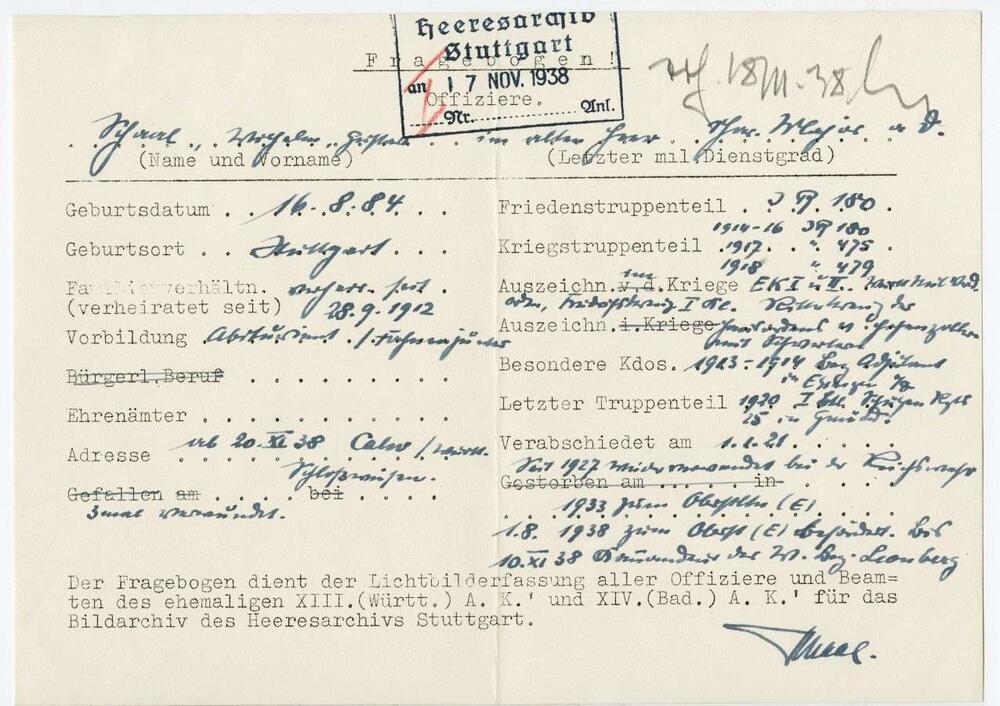 Heeresarchiv
Stuttgart
Fragebogen!
an 17 NOV. 1938
Offiziere.
Nr. Anl.
18/XI.38
Schaal, Wilhelm, im alten Heer Major a D.
(Name und Vorname) (Letzter mil. Dienstgrad)
Geburtsdatum . . 16. 8. 84 . . .
Geburtsort . . Stuttgart . . .
Familienverhältn. verheir. seit .
(verheiratet seit) 28. 9. 1912
Vorbildung Abiturient / Fahnenjunker
Bürgerl. Beruf . . . . . . . . .
Ehrenämter . . . . . . . . . . .
Adresse ab 20. XI 38 Calw / Württ.
Gefallen am . . . . . bei . . . .
3mal verwundet.
Friedenstruppenteil . J R. 180 .
1914-16 JR 180
Kriegstruppenteil . 1917. . " 475 .
1918 " 479
Auszeichn. v.d. im Kriege EK I u II.
Ritterkreuz des
Auszeichn. i. Kriege Hausordens v. Hohenzollern
mit Schwertern
Besondere Kdos. 1913-1914 Bez Adjutant
in
Letzter Truppenteil 1920 I Btl. Schützen Regts
25 in Gmünd.
Verabschiedet am . 1.1.21 . . .
Seit 1927 wiederverwendet bei der Reichswehr
Gestorben am . . . . . in . . . .
. . . 1933 zum Oberstltn (E) . . . .
1.8. 1938 zum Oberst (E) befördert. Bis
10. XI 38 Kommandeur des W. Bez. Leonberg
Der Fragebogen dient der Lichtbilderfassung aller Offiziere und Beam=
ten des ehemaligen XIII.(Württ.) A. K.' und XIV.(Bad.) A. K.' für das
Bildarchiv des Heeresarchivs Stuttgart.
Schaal.